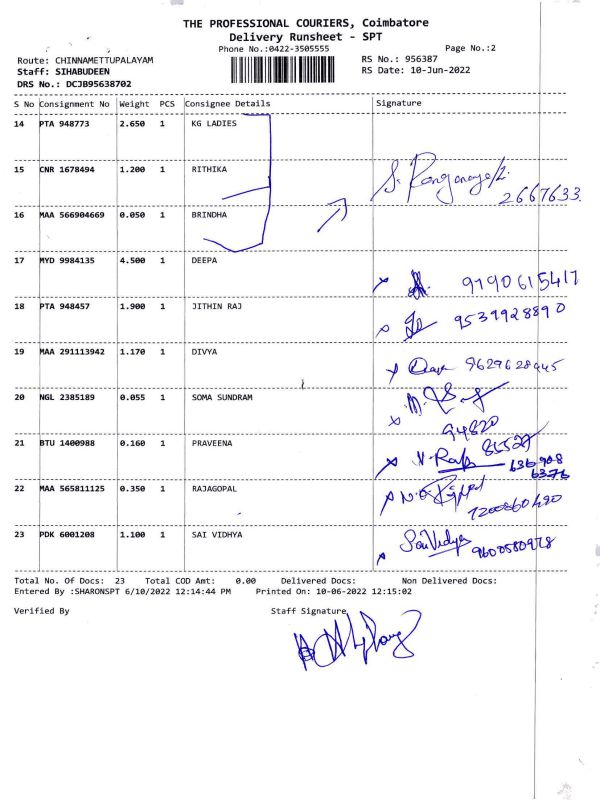 THE PROFESSIONAL COURIERS, Coimbatore
Delivery Runsheet - SPT
Phone No.:0422-3505555
Page No.:2
Route: CHINNAMETTUPALAYAM
RS No.: 956387
Staff: SIHABUDEEN
RS Date: 10-Jun-2022
DRS No.: DCJB95638702
S No Consignment No Weight PCS Consignee Details Signature
14 PTA 948773 2.650 1 KG LADIES
15 CNR 1678494 1.200 1 RITHIKA
2667633
16 MAA 566904669 0.050 1 BRINDHA
17 MYD 9984135 4.500 1 DEEPA
9190615417
18 PTA 948457 1.900 1 JITHIN RAJ
9539928890
19 MAA 291113942 1.170 1 DIVYA
9629628445
20 NGL 2385189 0.055 1 SOMA SUNDRAM
94820
85527
21 BTU 1400988 0.160 1 PRAVEENA
22 MAA 565811125 0.350 1 RAJAGOPAL
23 PDK 6001208 1.100 1 SAI VIDHYA
Sai Vidya 9600580978
Total No. Of Docs: 23 Total COD Amt: 0.00 Delivered Docs: Non Delivered Docs:
Entered By :SHARONSPT 6/10/2022 12:14:44 PM Printed On: 10-06-2022 12:15:02
Verified By Staff Signature